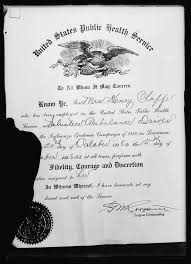 United States Public Health Service
To All Whom It May Concern
Know Ye, that Mrs. Henry
who has being employed in the United States Public Health
Service as Volunteer Ambulance Driver
in the Influenza Epidemic Campaign of 1918, in Louisiana
day of October to the
at all times, perform with
Fidelity, Courage and Discretion
assigned to her
In Witness Whereof, I have hereunto set my
hand and seal of the Service
Surgeon Commanding